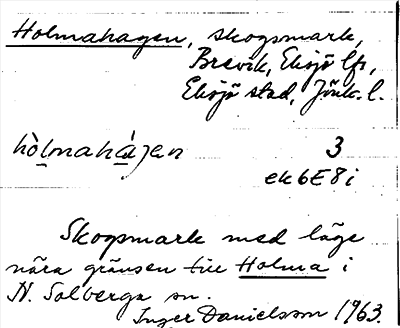 Holmahagen, skogsmark,
Brevik, Eksjö lfs,
Eksjö stad, Jönk. l.
hòlmahàgen 3
ek 6E8i
Skogsmark med läge
nära gränsen till Holma i
N. Solberga sn.
Inger Danielsson 1963.